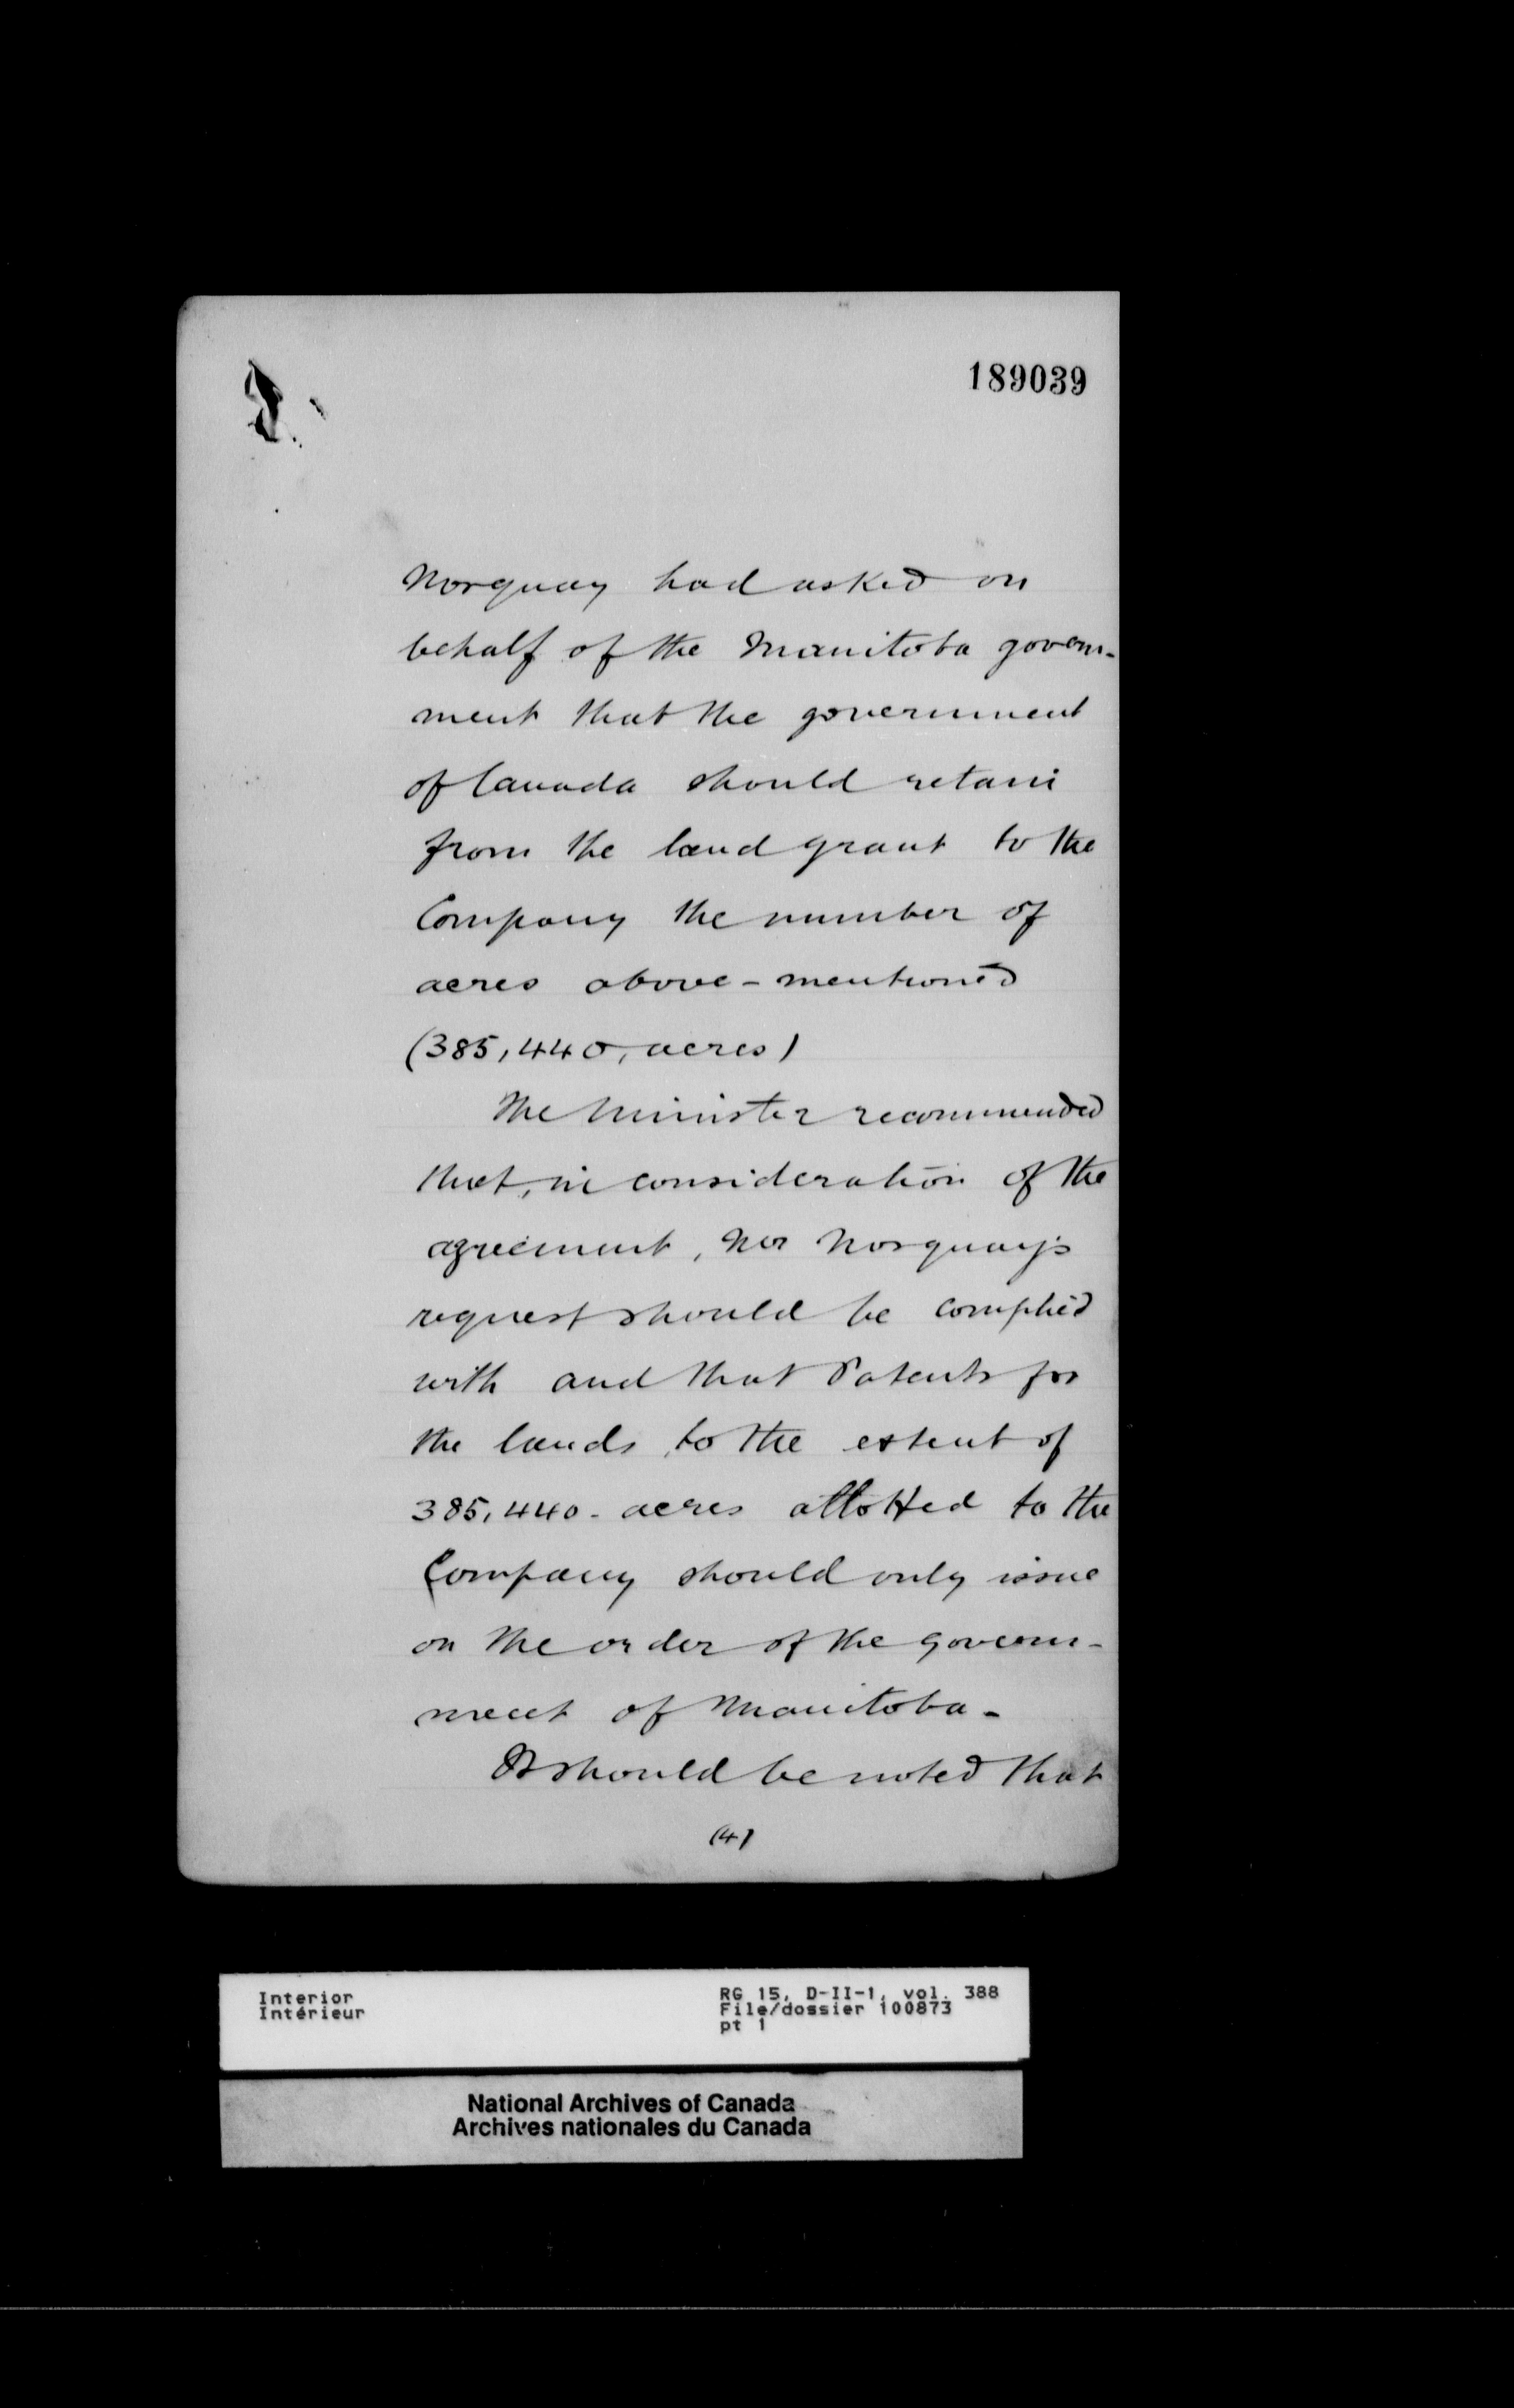 189039
Norquay had asked on
behalf of the Manitoba govern-
ment that the government
of Canada should retain
from the land grant to the
Company the number of
acres above-mentioned
(385,440, acres)
The Minister recommended
that, in consideration of the
agreement, Mr Norquay's
request should be complied
with and that Patents for
the lands, to the extent of
385,440- acres allotted to the
Company should only issue
on the order of the govern-
ment of Manitoba-
It should be noted that
(4)
Interior
Intérieur
RG 15, D-II-1, vol. 388
File/dossier 100873
pt 1
National Archives of Canada
Archives nationales du Canada